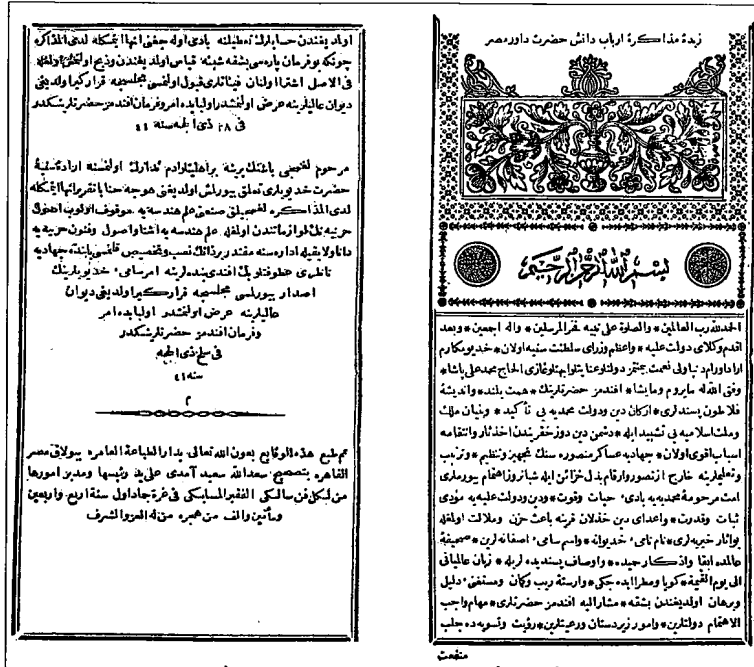 زبدهٔ مذاكرهٔ ارباب دانش حضرت داور مصر
بسم الله الرحمن الرحيم
الحمد لله رب العالمين * والصلوة على نبيه فخر المرسلين * واله اجمعين * وبعد
اقدم وكلاى دولت عليه * واعظم وزراى سلطنت سنيه اولان * خديو مكارم
الحاج محمد على پاشا *
وفق الله له مايروم ومايشا * افندمز حضرتلرينك * همت بلند * وانديشهٔ
فلاطون پسندلرى * اركان دين ودولت محمديه يى تأكيد * وبنيان ملك
وملت اسلاميه يى تشييد ايله * دشمن دين دوزخ قريندن اخذ ثار وانتقامه
اسباب اقوى اولان * جهاديه عساكر منصوره سنك تجهيز وتنظيم * وترتيب
وتعليملرينه خارج از تصور وارقام بذل خزائن ايله شبانروز اهتمام بيورملرى
امت مرحومهٔ محمديه يه بادىء حيات وقوت * ودين ودولت عليه يه مؤدى
ثبات وقدرت * واعداى دين خذلان قرينه باعث حزن وملالت اولمغله
بو اثار خيريه لرى * نام نامىء خديوانه * واسم سامىء اصفانه لرين * صحيفهٔ
عالمده ابقا واذكار حميده * واوصاف پسنديده لريله * زبان عالميانى
الى يوم القيمة * كويا ومطرا ايده جكى * وارستهٔ ريب وكمان ومستغنىء دليل
وبرهان اولديغندن بشقه * مشار اليه افندمز حضرتلرى * مهام واجب
الاهتمام دولتلرين * وامور زيردستان ورعيتلرين * رؤيت وتسويه ده جلب
منفعت
اولديغندن حسابلرك تعطيلنه بادى اوله جغى انها ايتمكله لدى المذاكره
چونكه بو فرمان پاره سى بشقه شيئه قياس اولديغندن
فى الاصل اشترا اولنان فيئاتلرى قبول اولنمسى مجلسجه قراركير اولديغى
ديوان عاليلرينه عرض اولنمشدر اولبابده امر وفرمان افندمز حضرتلرينكدر
فى ٢٨ ذى الحجه سنه ٤٤
مرحوم لغمجى باشنك يرينه بر اهليتلو ادم تدارك اولنمسنه ارادهٔ سنيهٔ
حضرت خديويلرى تعلق بيورلمش اولديغنى
لدى المذاكره لغمجيلق صنعتى علم هندسه يه موقوف اولوب
حربيه نك لوازماتندن اولمغله علم هندسه يه اشنا واصول وفنون حربيه يه
دانا ولايقيله اداره سنه مقتدر بر ذاتك نصب وتخصيص قلنمسى بابنده جهاديه
ناظرى عطوفتلو بك افندى بنده لرينه امر سامىء خديويلرينك
اصدار بيورلمسى مجلسجه قراركير اولديغى ديوان
عاليلرينه عرض اولنمشدر اولبابده امر
وفرمان افندمز حضرتلرينكدر
فى سلخ ذى الحجه
سنه ٤٤
م
تم طبع هذه الوقايع بعون الله تعالى بدار الطباعة العامره ببولاق مصر
القاهره بتصحيح سعد الله سعيد آمدى على يد رئيسها ومدير امورها
من لكل فن سالكى الفقير المسابكى فى غرة جماد اول سنة اربع واربعين
ومأتين والف من هجره من له العز والشرف